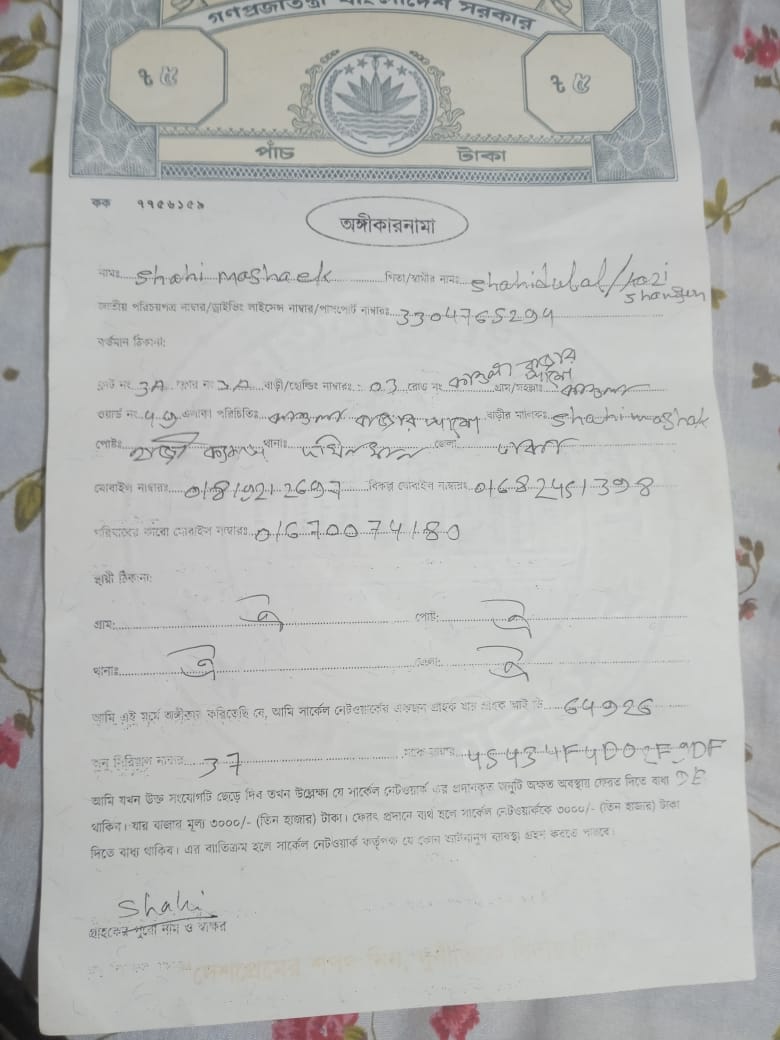 গণপ্রজাতন্ত্রী বাংলাদেশ সরকার
৳ ৫ ৳ ৫
পাঁচ টাকা
কক ৭৭৫৬১৫৯
অঙ্গীকারনামা
নামঃ Shahi mashaek পিতা/স্বামীর নামঃ Shahidubal/kazi
জাতীয় পরিচয়পত্র নাম্বার/ড্রাইভিং লাইসেন্স নাম্বার/পাসপোর্ট নাম্বারঃ 3304765294
বর্তমান ঠিকানা:
ফ্লাট নং 3A ফ্লোর নং 3A বাড়ী/হোল্ডিং নাম্বারঃ 03 রোড নং বাজার গ্রাম/মহল্লাঃ
ওয়ার্ড নং ৪৭ এলাকা পরিচিতিঃ বাজার বাড়ীর মালিকঃ Shahi mashak
পোষ্টঃ থানাঃ দক্ষিনখান জেলা ঢাকা
মোবাইল নাম্বারঃ 01819212697 বিকল্প মোবাইল নাম্বারঃ 01682451398
পরিবারের কারো মোবাইল নাম্বারঃ 01670074180
স্থায়ী ঠিকানা:
গ্রাম: ঐ পোষ্ট: ঐ
থানাঃ ঐ জেলা: ঐ
আমি এই মর্মে অঙ্গীকার করিতেছি যে, আমি সার্কেল নেটওয়ার্কের একজন গ্রাহক যার গ্রাহক আই ডি 64926
অনু সিরিয়াল নাম্বার 37 ম্যাক নাম্বার
আমি যখন উক্ত সংযোগটি ছেড়ে দিব তখন উল্লেক্ষ্য যে সার্কেল নেটওয়ার্ক এর প্রদানকৃত অনুটি অক্ষত অবস্থায় ফেরত দিতে বাধ্য DE
থাকিব। যার বাজার মূল্য ৩০০০/- (তিন হাজার) টাকা। ফেরৎ প্রদানে ব্যর্থ হলে সার্কেল নেটওয়ার্ককে ৩০০০/- (তিন হাজার) টাকা
দিতে বাধ্য থাকিব। এর ব্যতিক্রম হলে সার্কেল নেটওয়ার্ক কর্তৃপক্ষ যে কোন আইনানুগ ব্যবস্থা গ্রহন করতে পারবে।
Shahi
গ্রাহকের পুরো নাম ও স্বাক্ষর